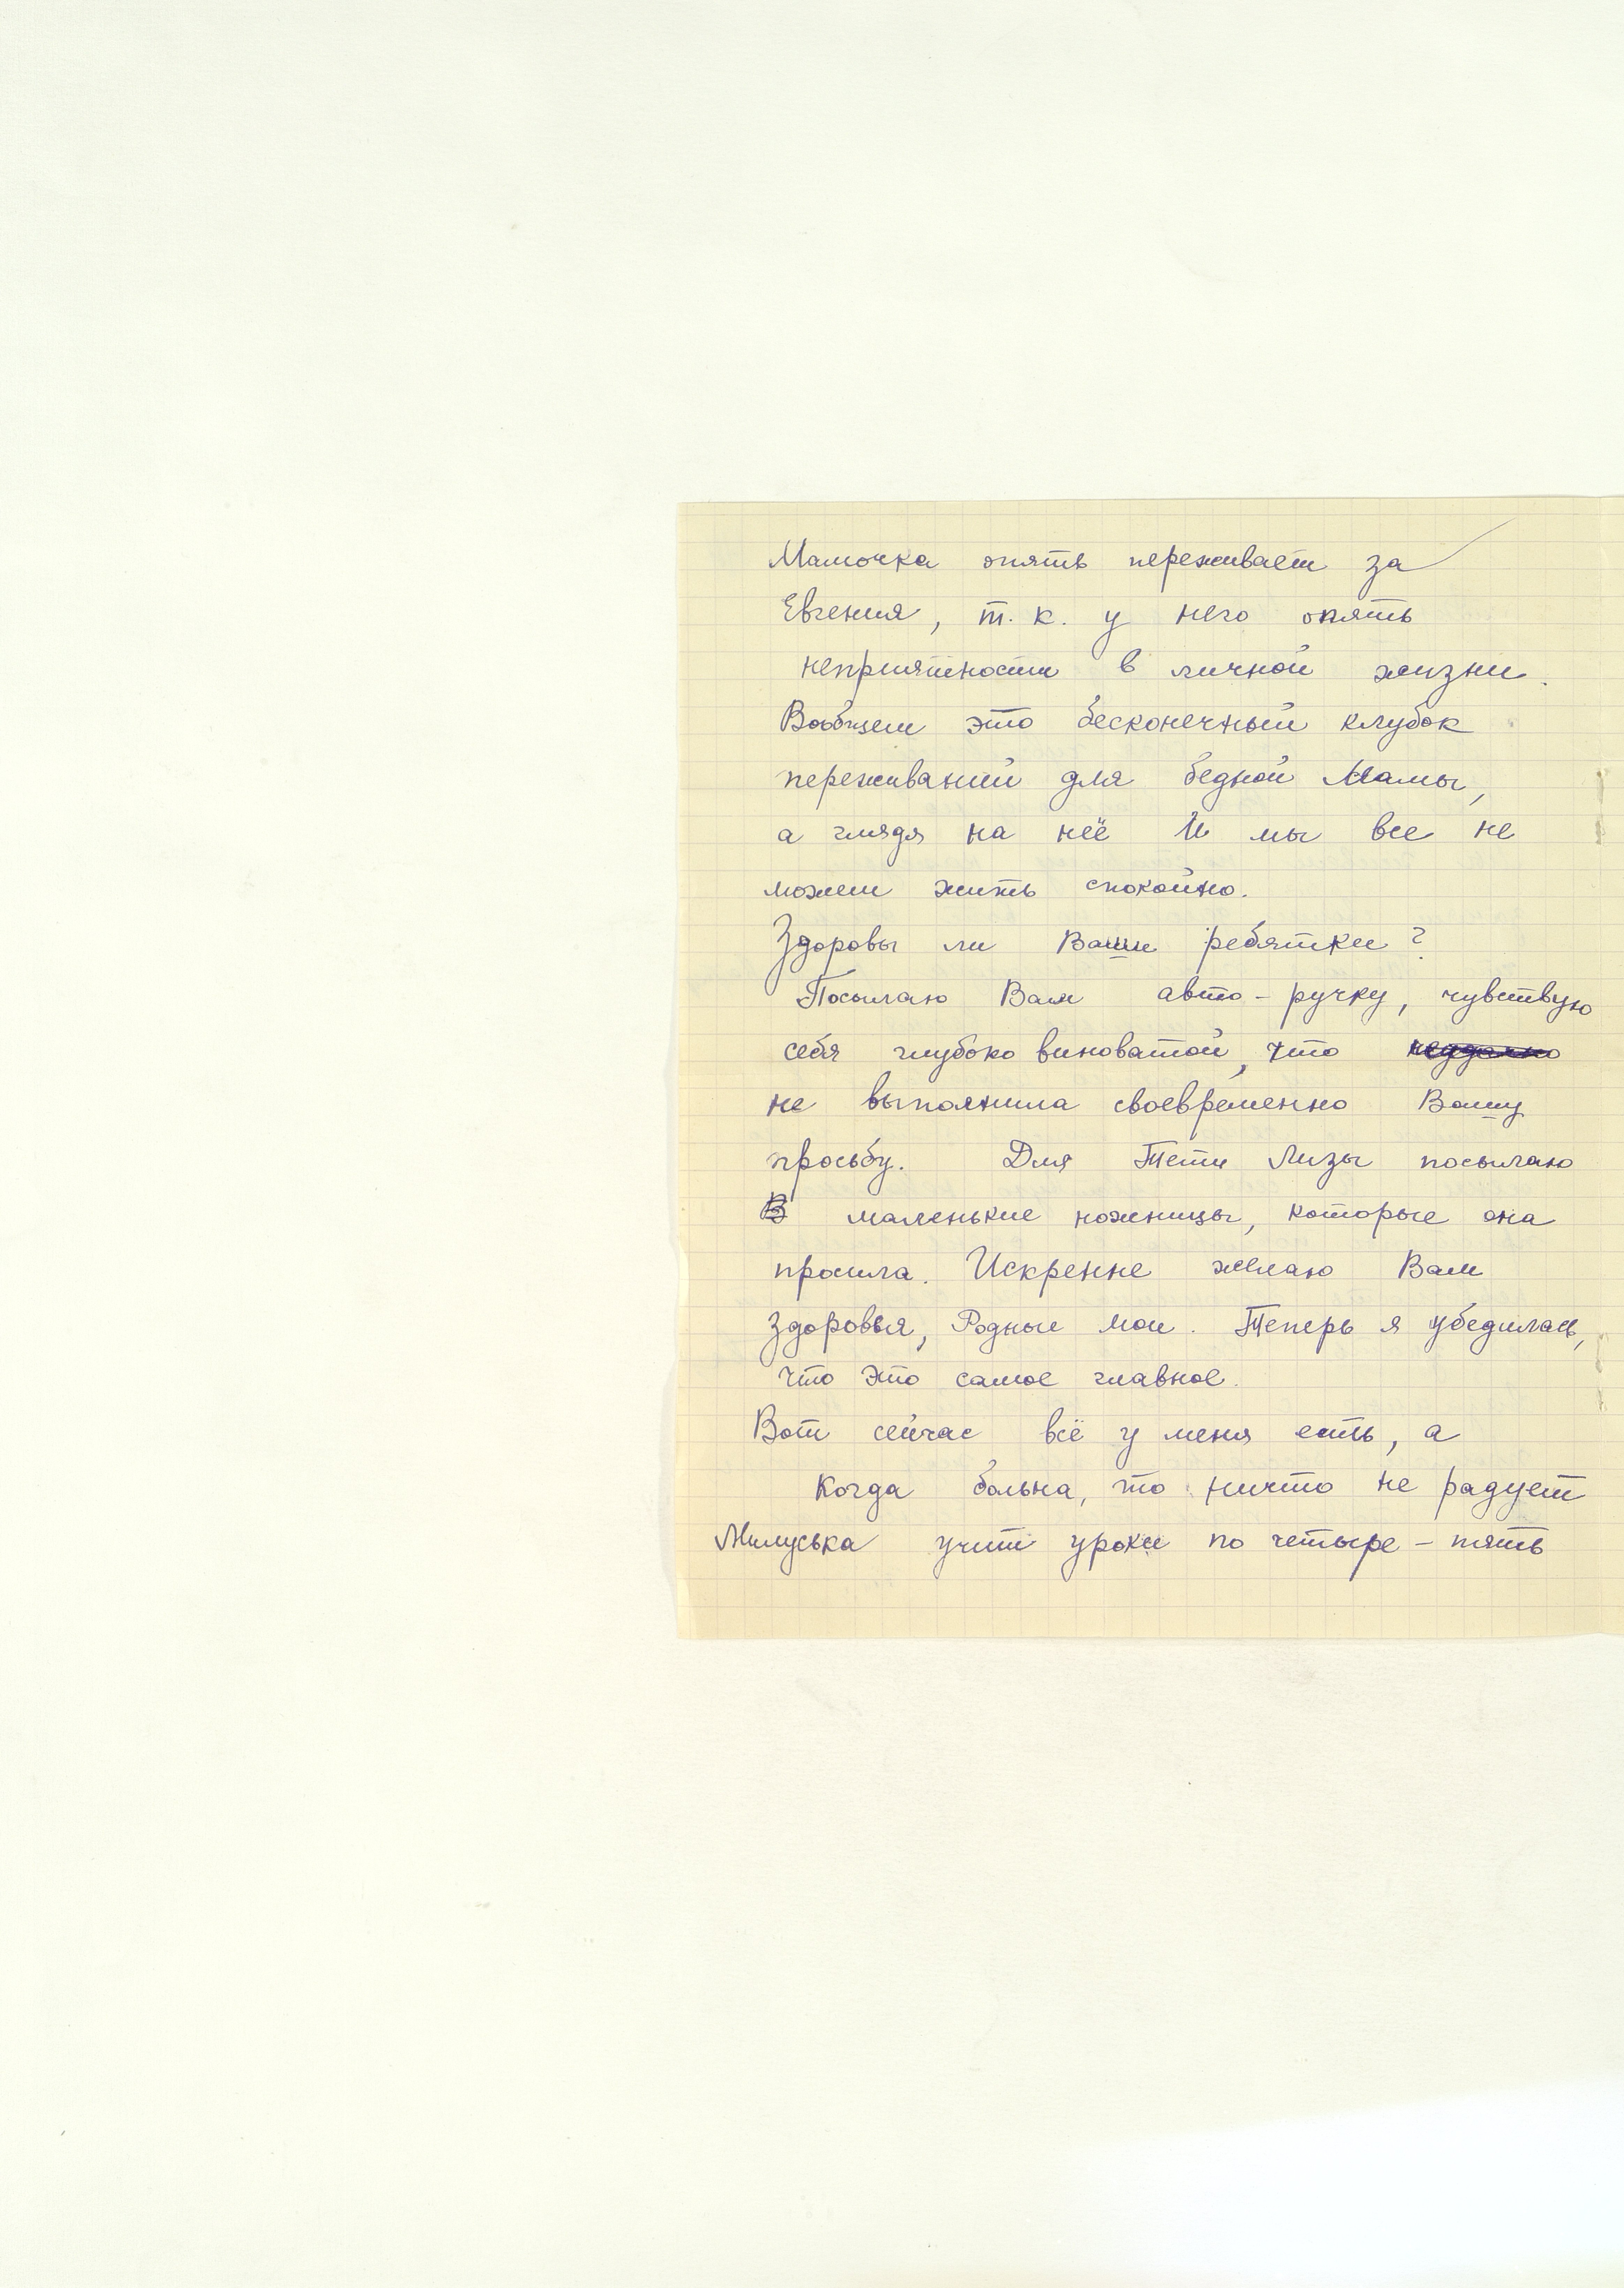 Мамочка опять переживает за
Евгения, т. к. у него опять
неприятности в личной жизни.
Вообщем это бесконечный клубок
переживаний для бедной Мамы,
а глядя на неё и мы все не
можем жить спокойно.
Здоровы ли Ваши ребятки?
Посылаю Вам авто-ручку, чувствую
себя глубоко виноватой, что
не выполнила своевременно Вашу
просьбу. Для Тети Лизы посылаю
В маленькие ножницы, которые она
просила. Искренне желаю Вам
здоровья, Родные мои. Теперь я убедилась,
что это самое главное.
Вот сейчас всё у меня есть, а
когда больна, то ничто не радует
Милуська учит уроки по четыре - пять